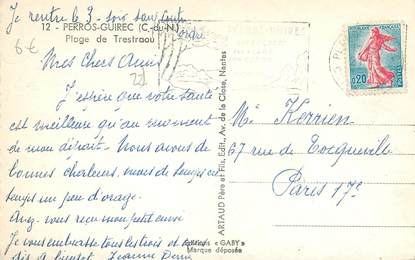 Je rentre le 3 - soir sans faute
6€
12 - PERROS-GUIREC (C.-du-N.)
Plage de Trestraou
22
Mes Chers Amis
J'espère que votre santé
est meilleure qu'au moment
de mon départ. Nous avons de
bonnes chaleurs, mais de temps en
temps un peu d'orage.
Avez-vous reçu mon petit envoi
Je vous embrasse tous les trois et vous
dis à bientôt Jeanne
ARTAUD Père et Fils, Edit., Av. de la Close, Nantes
Editions « GABY »
Marque déposée
REPUBLIQUE FRANÇAISE
0,20
POSTES
M. Kerrien
67 rue de Tocqueville
Paris 17e